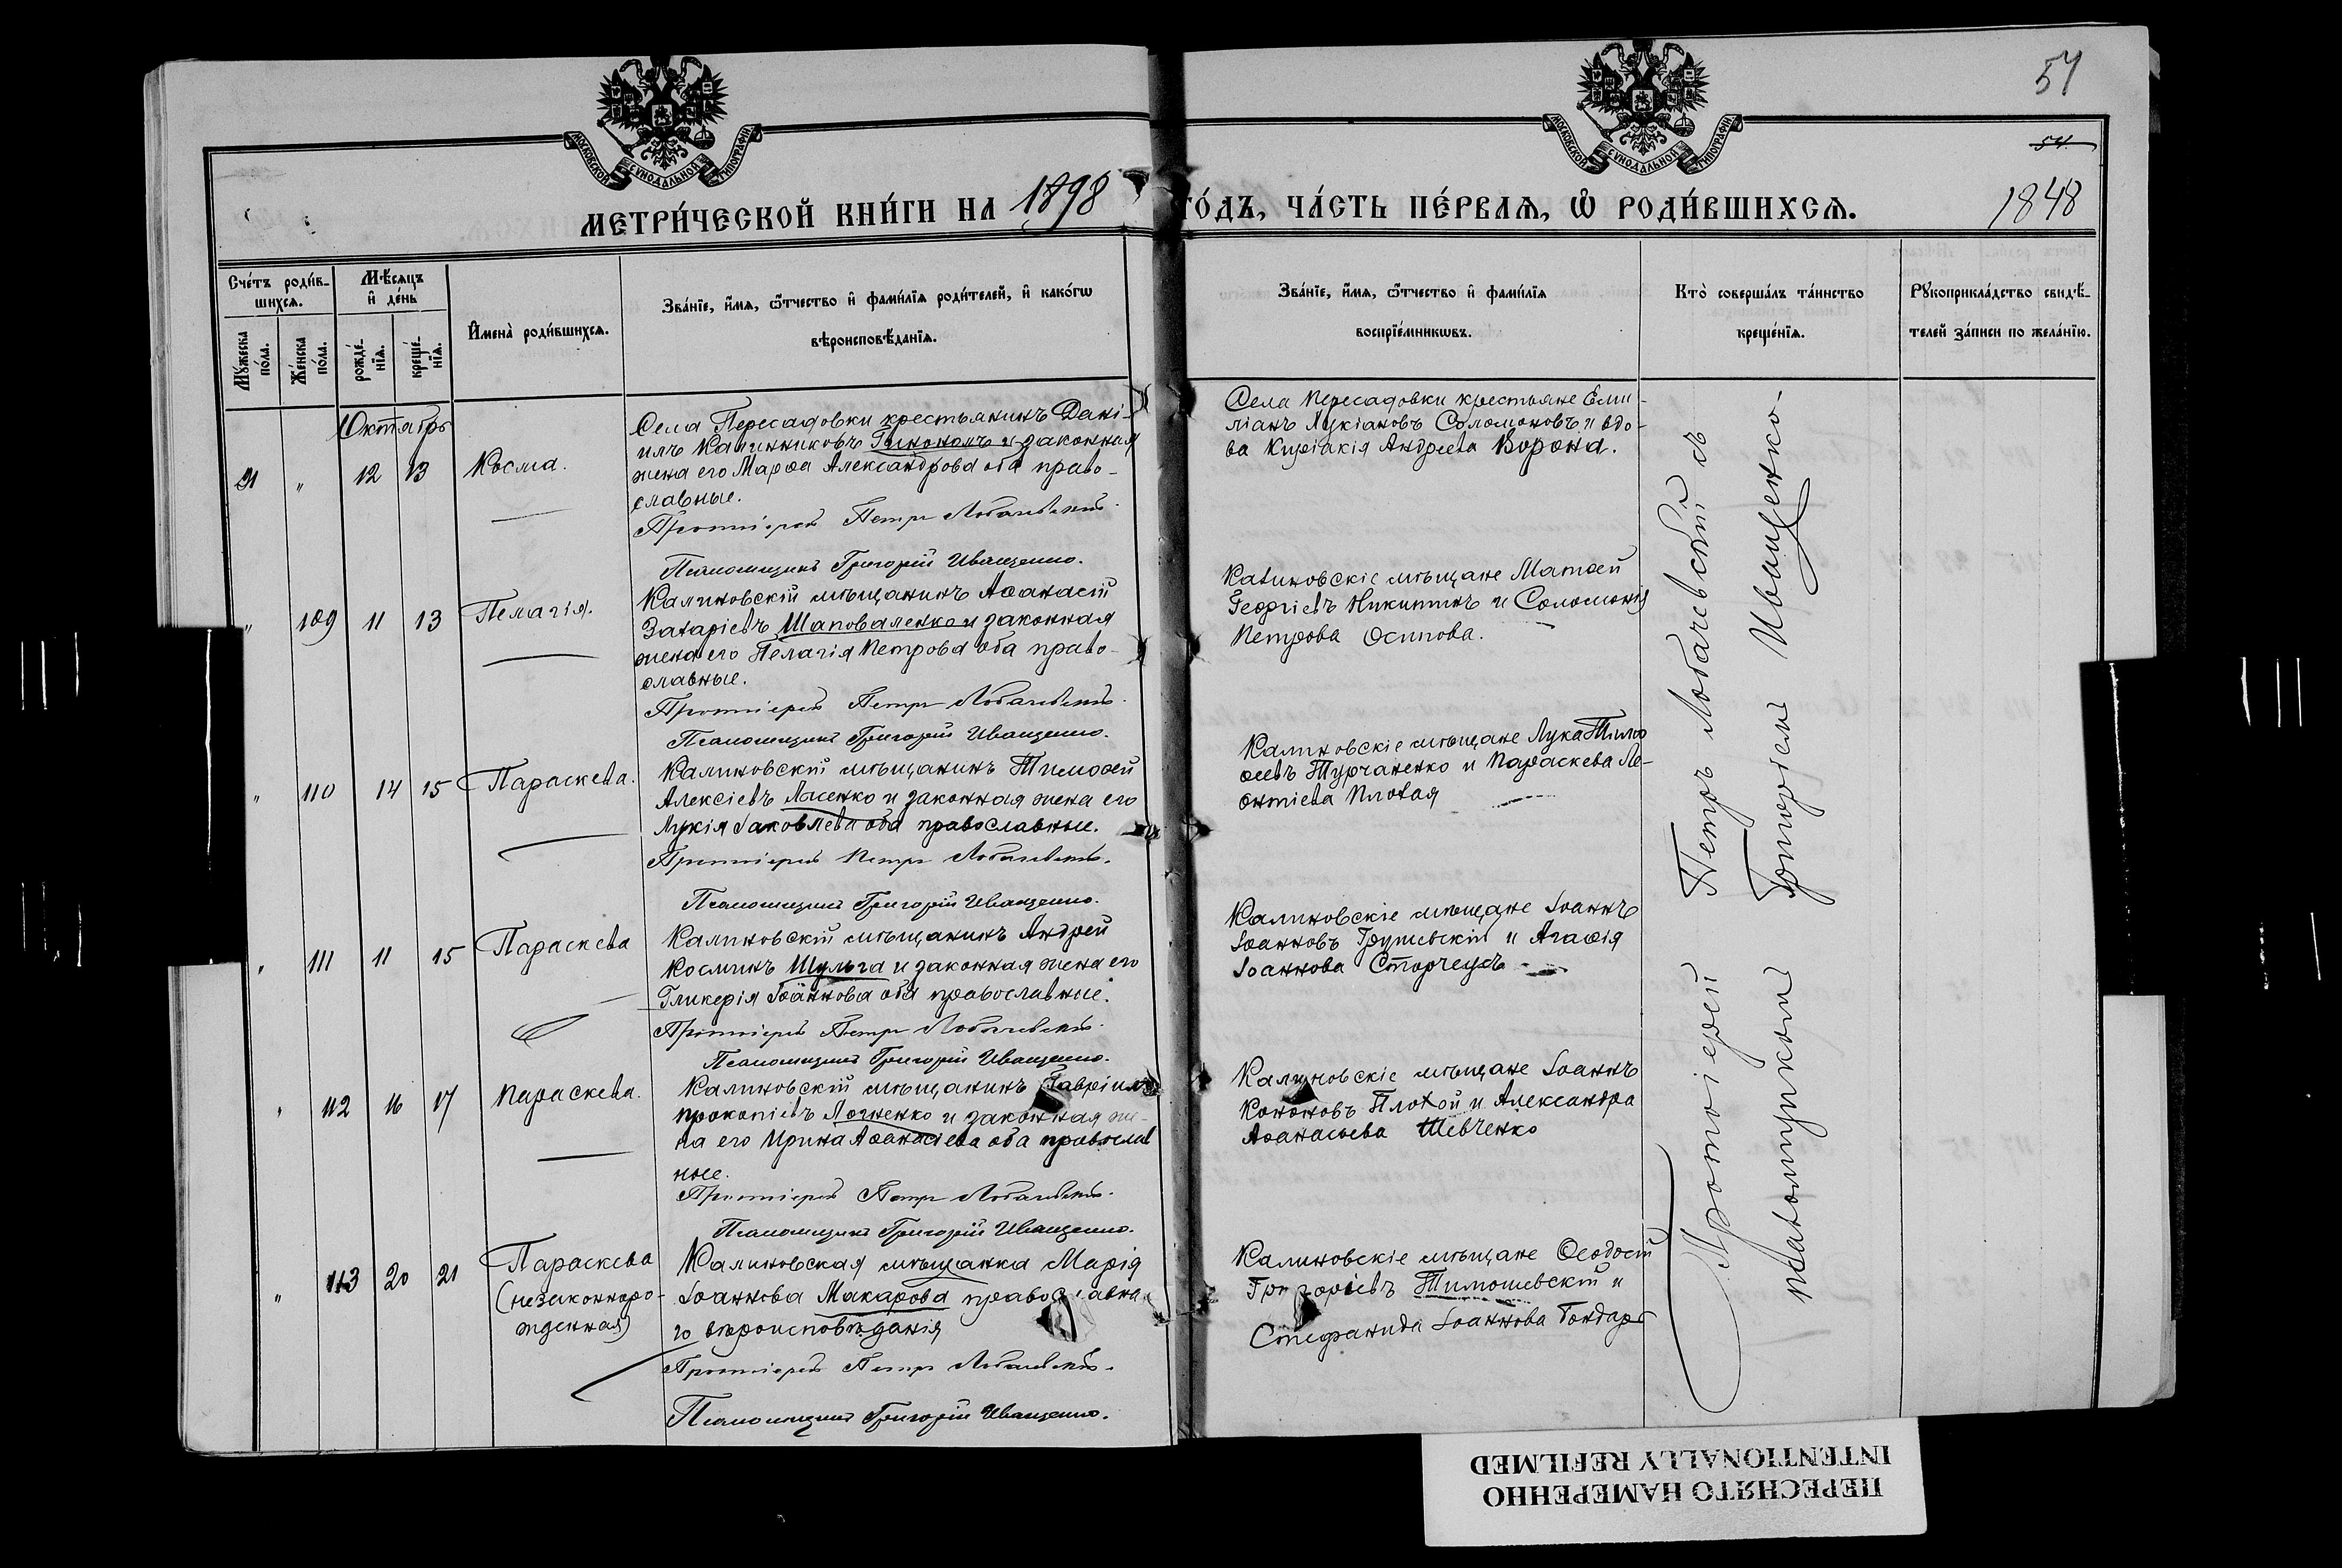 54
54
МОСКОВСКОЙ СѴНОДАЛЬНОЙ ТИПОГРАФІИ
МОСКОВСКОЙ СѴНОДАЛЬНОЙ ТИПОГРАФІИ
МЕТРИ́ЧЕСКОЙ КНИ́ГИ НА 1898 ГО́ДЪ, ЧА́СТЬ ПЕ́РВАѦ, Ѽ РОДИ́ВШИХСѦ. 1848
Сче́тъ роди́в-
шихсѧ.
Мꙋ́жеска по́ла.
Же́нска по́ла.
Мѣ́сѧцъ и҆ де́нь
рожде́-нїѧ.
креще́-нїѧ.
И҆мена̀ роди́вшихсѧ.
Зва́нїе, и҆́мѧ, ѻ҆́тчество и҆ фами́лїѧ роди́телей, и҆ како́гѡ
вѣроисповѣ́данїѧ.
Зва́нїе, и҆́мѧ, ѻ҆́тчество и҆ фами́лїѧ
воспрїе́мникѡвъ.
Кто̀ соверша́лъ та́инство
креще́нїѧ.
Рꙋкоприкла́дство свидѣ́-
телей за́писи по жела́нїю.
Октябрь
91 " 12 13 Косма.
Села Пересадовки крестьянинъ Дані-
илъ Калинниковъ и законная
жена его Марѳа Александрова оба право-
славные.
Протоіерей Петръ Лобачевскій.
Псаломщикъ Григорій Иващенко.
Села Пересадовки крестьяне Еми-
ліанъ Лукіановъ Соломоновъ и вдо-
ва Киріакія Андреева Ворона.
" 109 11 13 Пелагія.
Калиновскій мѣщанинъ Аѳанасій
Захаріевъ Шаповаленко и законная
жена его Пелагія Петрова оба право-
славные.
Протоіерей Петръ Лобачевскій.
Псаломщикъ Григорій Иващенко.
Калиновскіе мѣщане Матѳей
Георгіевъ Никитинъ и Соломонія
Петрова Осипова.
" 110 14 15 Параскева.
Калиновскій мѣщанинъ Тимоѳей
Алексіевъ Лысенко и законная жена его
Лукія Іаковлева оба православные.
Протоіерей Петръ Лобачевскій.
Псаломщикъ Григорій Иващенко.
Калиновскіе мѣщане Лука Тимо
ѳеевъ Турчаненко и Параскева Ле-
онтіева Плохая
" 111 11 15 Параскева
Калиновскій мѣщанинъ Андрей
Косминъ Шульга и законная жена его
Гликерія Іоаннова оба православные.
Протоіерей Петръ Лобачевскій.
Псаломщикъ Григорій Иващенко.
Калиновскіе мѣщане Іоаннъ
Іоанновъ Грушевскій и Агаѳія
Іоаннова Сторчеусъ
" 112 16 17 Параскева.
Калиновскій мѣщанинъ Гавріилъ
Прокопіевъ Логненко и законная же-
на его Ирина Аѳанасіева оба православ
ные.
Протоіерей Петръ Лобачевскій.
Псаломщикъ Григорій Иващенко.
Калиновскіе мѣщане Іоаннъ
Кононовъ Плохой и Александра
Аѳанасьева Шевченко
" 113 20 21 Параскева
(незаконноро-
жденная)
Калиновская мѣщанка Марія
Іоаннова Макарова православна
го вѣроисповѣданія
Протоіерей Петръ Лобачевскій.
Псаломщикъ Григорій Иващенко.
Калиновскіе мѣщане Ѳеодосій
Григоріевъ Тимошевскій и
Стефанида Іоаннова Бондарь
Протоіерей Петръ Лобачевскій съ
псаломщикомъ Григоріемъ Иващенко.
ПЕРЕСНЯТО НАМЕРЕННО
INTENTIONALLY REFILMED